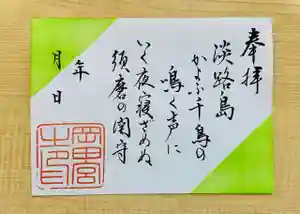 奉拝
淡路島
かよふ千鳥の
鳴く声に
いく夜寝ざめぬ
須磨の関守
年
月
日